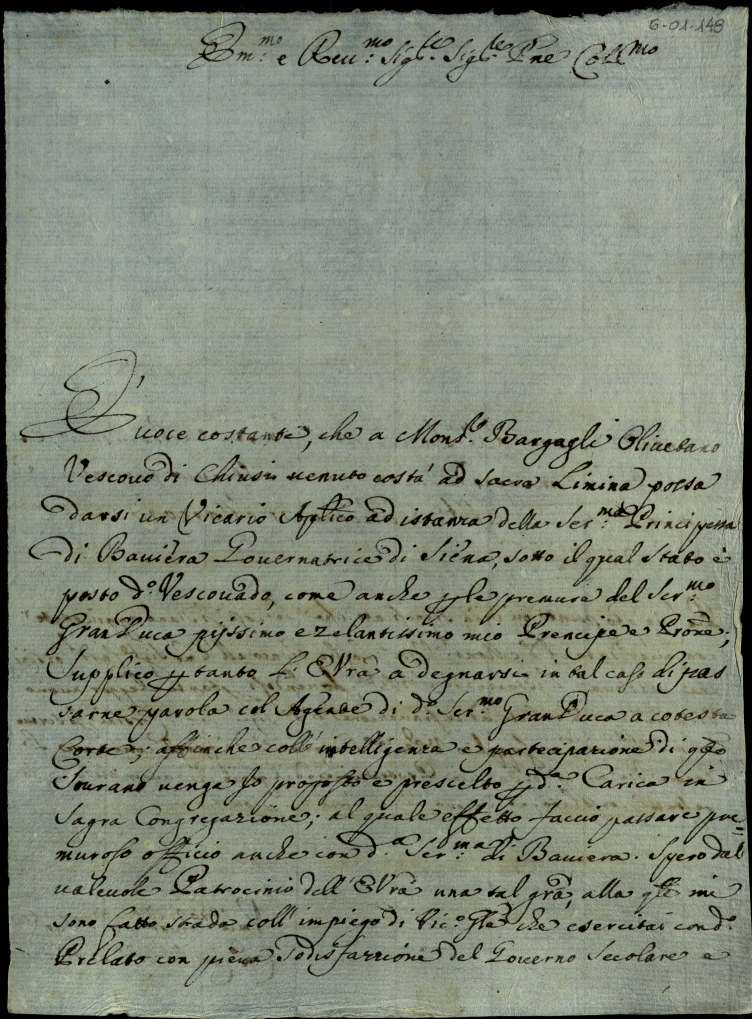 6-01-148
Em:mo e Reu:mo Sig:re Sig:re Pne Col:mo
E' uoce costante, che a Mons:re Bargagli Oliuetano
Vescouo di Chiusi uenuto costà ad sacra Limina possa
darsi un Vicario Aplico ad istanza della Ser:ma Principessa
di Bauiera Gouernatrice di Siena, sotto il qual Stato è
posto d:o Vescouado, come anche p le premure del Ser:mo
GranDuca pijssimo e zelantissimo mio Prencipe e Prone;
Supplico p tanto l'EVra a degnarsi in tal caso di pas
sarne parola col Agente di d:o Ser:mo GranDuca a cotesta
Corte, affinche coll'intelligenza e partecipazione di qsto
Sourano uenga Io proposto e prescelto p d:a Carica in
Sagra Congregazione; al quale effetto faccio passare pre=
muroso officio anche con d:a Ser:ma di Bauiera. Spero dal
ualeuole Patrocinio dell'EVra una tal gra, alla qle mi
sono fatto strada coll'impiego di Vic:o Gle che esercitai con d:o
Prelato con piena Sodisfazzione del Gouerno Secolare e